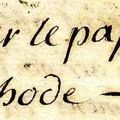 r le pap
hode —